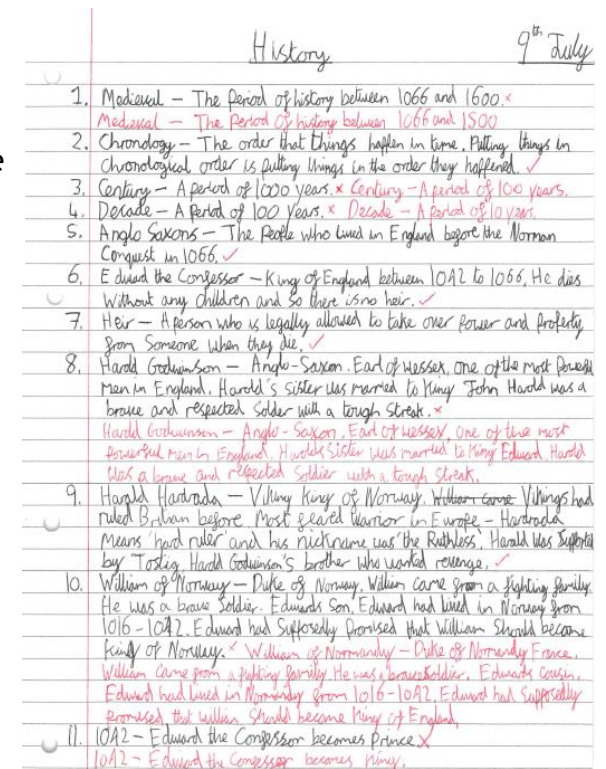 History 9th July
1. Medieval – The Period of history between 1066 and 1600. ×
Medieval – The Period of history between 1066 and 1500
2. Chronology – The order that things happen in time. Putting things in
Chronological order is putting things in the order they happened. ✓
3. Century – A period of 1000 years. × Century – A period of 100 years.
4. Decade – A Period of 100 years. × Decade – A Period of 10 years.
5. Anglo Saxons – The People who lived in England before the Norman
Conquest in 1066. ✓
6. Edward the Confessor – King of England between 1042 to 1066, He dies
without any children and so there is no heir. ✓
7. Heir – A person who is legally allowed to take over power and property
from Someone when they die. ✓
8. Harold Godwinson – Anglo-Saxon. Earl of wessex, one of the most Powerful
Men in England. Harold's sister was married to King John Harold was a
brave and respected Solder with a tough Streak. ×
Harold Godwinson – Anglo-Saxon. Earl of wessex, one of the most
powerful men in England. Harolds Sister was married to King Edward. Harold
was a brave and respected Soldier with a tough Streak.
9. Harald Hardrada – Viking King of Norway. William came Vikings had
ruled Britian before Most feared warrior in Europe – Hardrada
Means 'hard ruler' and his nickname was 'the Ruthless'. Harald was Supported
by Tostig, Harold Godwinson's brother who wanted revenge. ✓
10. William of Norway – Duke of Norway, William came from a fighting family.
He was a brave Soldier. Edwards Son, Edward had lived in Norway from
1016-1042. Edward had Supposedly Promised that William Should become
King of Norway. × William of Normandy – Duke of Normandy France.
William came from a fighting family. He was a brave Soldier. Edwards Cousin.
Edward had lived in Normandy from 1016-1042. Edward had Supposedly
promised, that willian Should become King of England.
11. 1042 – Edward the Confessor becomes Prince ×
1042 – Edward the Confessor becomes King.